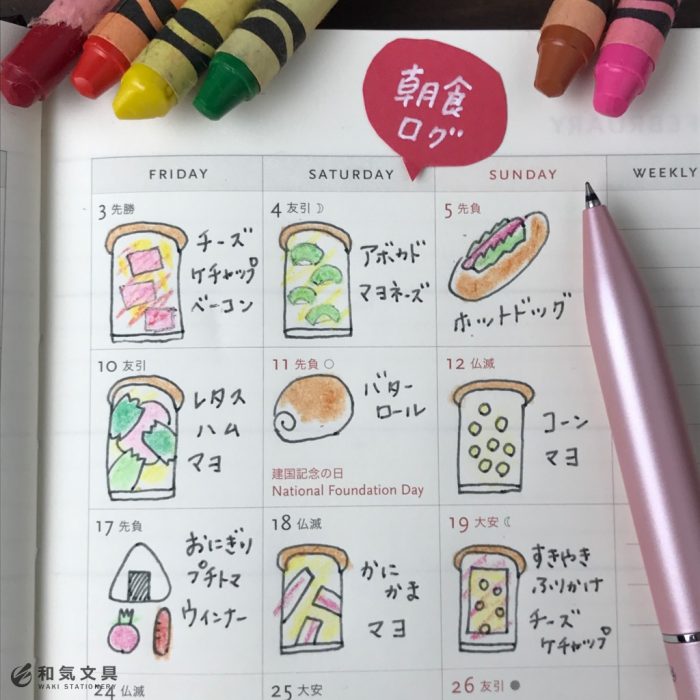 朝食
ログ
FRIDAY
SATURDAY
SUNDAY
WEEKLY
3 先勝
チーズ
ケチャップ
ベーコン
4 友引
アボカド
マヨネーズ
5 先負
ホットドッグ
10 友引
レタス
ハム
マヨ
11 先負
バター
ロール
建国記念の日
National Foundation Day
12 仏滅
コーン
マヨ
17 先負
おにぎり
プチトマ
ウインナー
18 仏滅
かに
かま
マヨ
19 大安
すきやき
ふりかけ
チーズ
ケチャップ
24 仏滅
25 大安
26 友引
和気文具
WAKI STATIONERY